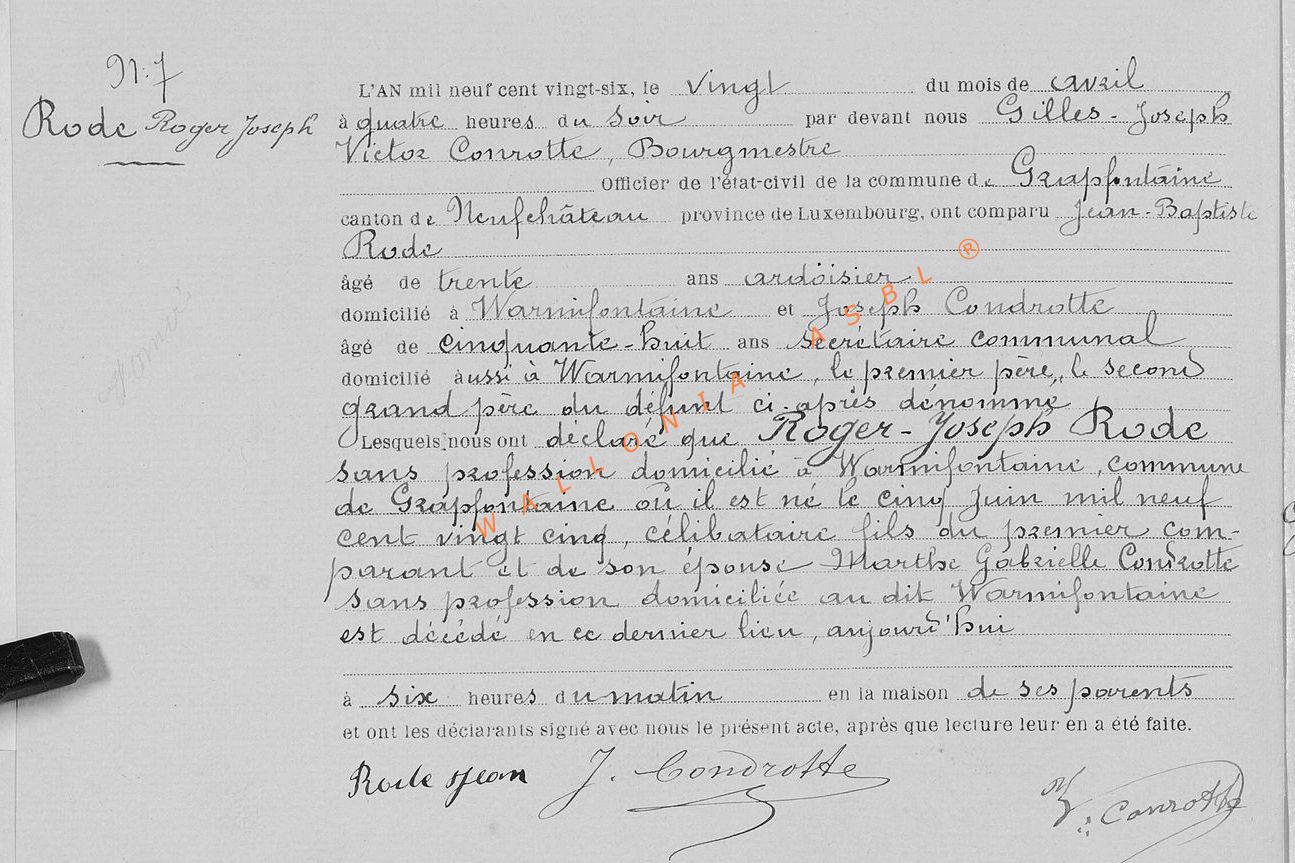 N: 7
Rode Roger Joseph
L'AN mil neuf cent vingt-six, le vingt du mois de avril
à quatre heures du soir par devant nous Gilles-Joseph
Victor Conrotte, Bourgmestre
Officier de l'état-civil de la commune de Grapfontaine
canton de Neufchâteau province de Luxembourg, ont comparu Jean-Baptiste
Rode
âgé de trente ans ardoisier
domicilié à Warmifontaine et Joseph Condrotte
âgé de cinquante-huit ans secrétaire communal
domicilié aussi à Warmifontaine, le premier père, le second
grand père du défunt ci-après dénommé
Lesquels nous ont déclaré que Roger-Joseph Rode
sans profession domicilié à Warmifontaine, commune
de Grapfontaine où il est né le cinq Juin mil neuf
cent vingt cinq, célibataire fils du premier com-
parant et de son épouse Marthe Gabrielle Condrotte
sans profession domiciliée au dit Warmifontaine
est décédé en ce dernier lieu, aujourd'hui
à six heures du matin en la maison de ses parents
et ont les déclarants signé avec nous le présent acte, après que lecture leur en a été faite.
Rode Jean J. Condrotte V. Conrotte
WALLONIA ASBL ®